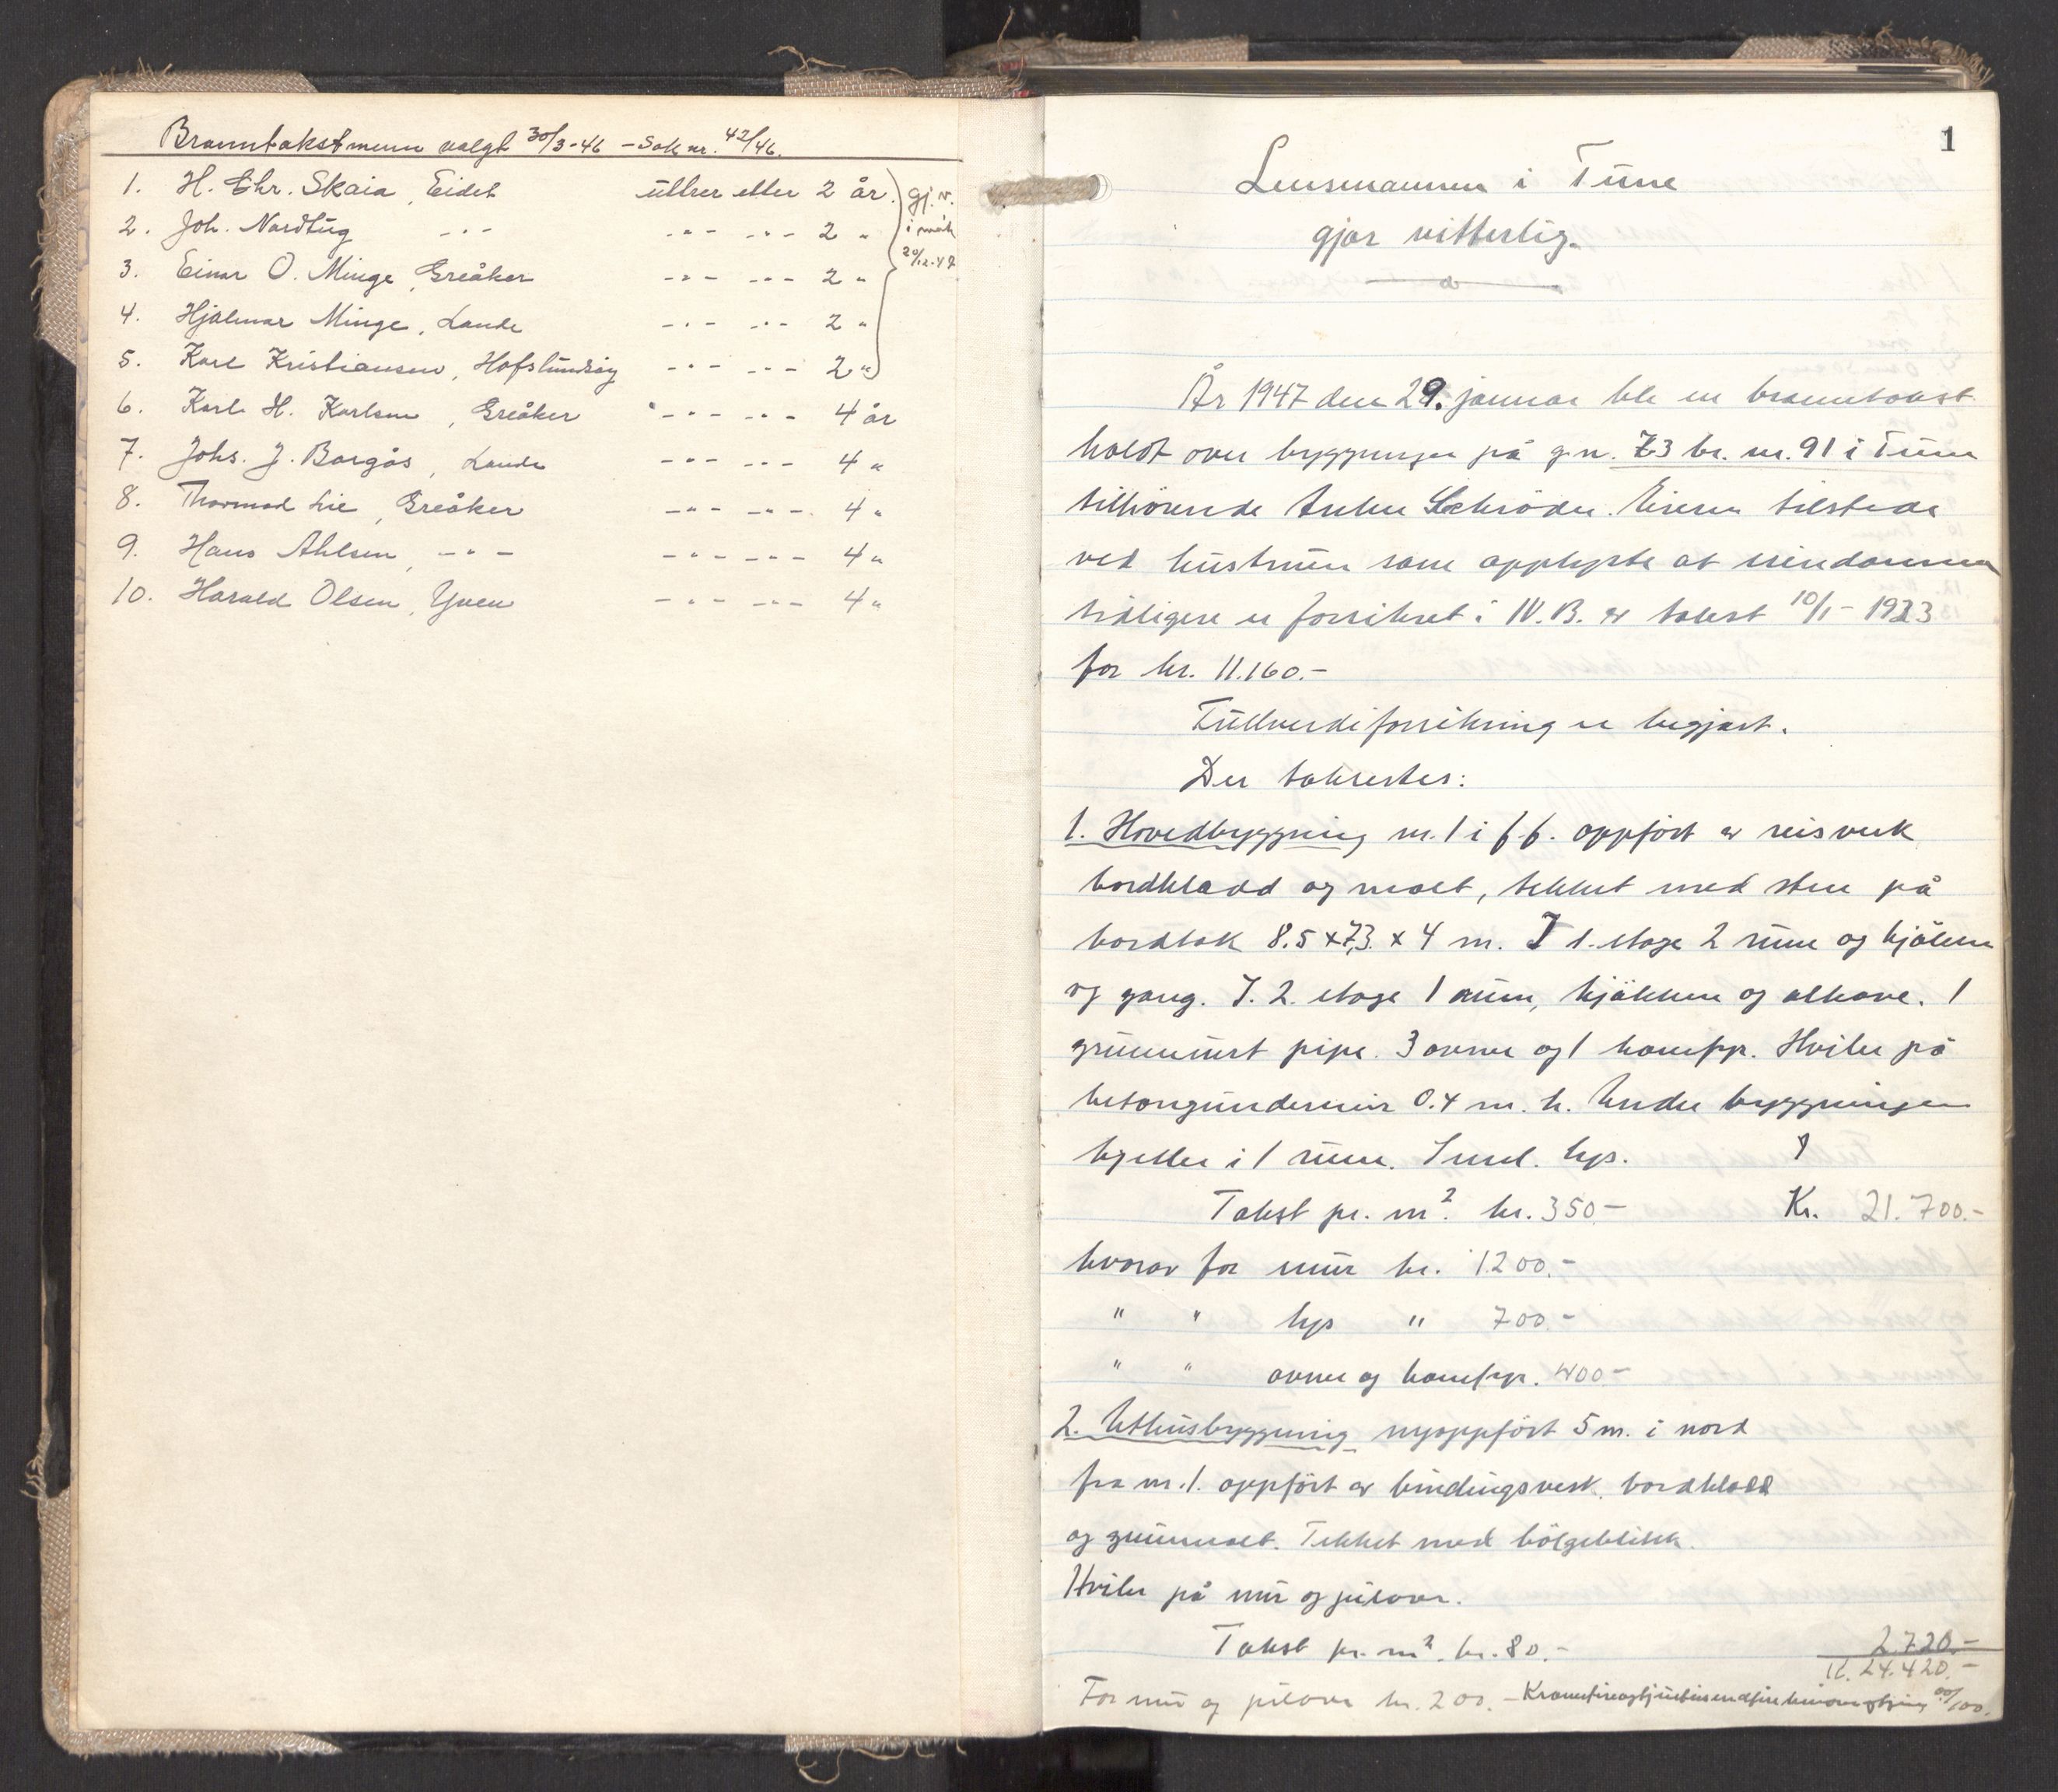 Branntakstmenn valgt 30/3-46 - Sak nr. 42/46.
1. H. Chr. Skaia, Eidet uttrer etter 2 år.
2. Joh. Nordtug -"- -"- -"- 2 "
3. Einar O. Minge, Greåker -"- -"- 2 "
4. Hjalmar Minge, Lande -"- -"- 2 "
5. Karl Kristiansen, Hafslundsøy -"- -"- 2 "
gj.v.
i møte
20/12-48
6. Karl H. Karlsen, Greåker -"- -"- 4 år
7. Johs. J. Borgås, Lande -"- -"- 4 "
8. Thormod Lie, Greåker -"- -"- 4 "
9. Hans Ahlsen, -"- -"- -"- 4 "
10. Harald Olsen, Yven -"- -"- 4 "
1
Lensmannen i Tune
gjør vitterlig.
År 1947 den 29. januar ble en branntakst
holdt over bygninger på g.n. 73 br. nr. 91 i Tune
tilhörende Anker Schröder. Eieren tilstede
ved hustruen som opplyste at eiendommen
tidligere er forsikret i N.B. av takst 10/1-1923
for kr. 11.160.-
Fullverdiforsikring er begjært.
Der takseres:
1. Hovedbygning nr. 1 i f.f. oppfört av reisverk
bordkledd og malt, tekket med sten på
bordtak 8.5 x 7,3 x 4 m. I 1. etage 2 rum og kjöken
og gang. I. 2. etage 1 rum, kjökken og alkove. 1
grunnmurt pipe. 3 ovner og 1 komfyr. Hviler på
betongundermur 0.4 m. h. Under bygningen
kjeller i 1 rum. Innl. lys.
Takst pr. m². kr. 350.- Kr. 21.700.-
hvorav for mur kr. 1200.-
" " lys " 700.-
" " ovner og komfyr. 400.-
2. Uthusbygning nyoppfört 5 m. i nord
fra nr. 1. oppfört av bindingsverk. bordkledd
og grunnmalt. Tekket med bölgeblikk.
Hviler på mur og pilarer.
Takst pr. m². kr. 80.- 2.720.-
Kr. 24.420.-
For mur og pilarer kr. 200.- Kronertireogtjuetusenfirehundreogtjue 00/100.